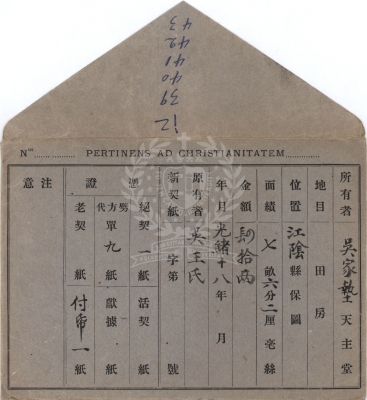 12 39 40 41 42 43
Nᵒˢ PERTINENS AD CHRISTIANITATEM
所有者 吳家塾天主堂
地目 田房
位置 江陰縣保圖
面積 七畝六分二厘毫絲
金額 肆拾两
年月 光緒十八年 月
原有者 吳王氏
新契紙 字第 號
憑證
絕契一紙 活契 紙
契方代單九紙 獻據 紙
老契 紙 付帋一紙
注意